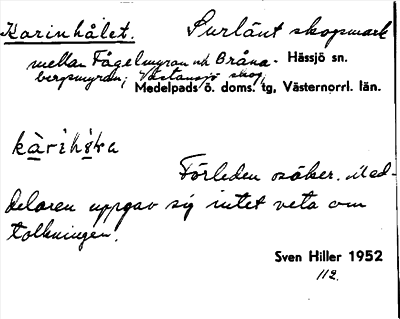 Karinhålet. Surlänt skogsmark
mellan Fågelmyran och Bråna- Hässjö sn.
bergsmyran; Västansjö skog,
Medelpads ö. doms. tg, Västernorrl. län.
Förleden osäker. Med-
delaren uppgav sig intet veta om
tolkningen.
Sven Hiller 1952
112.